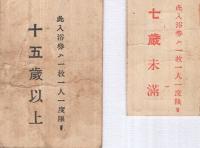 此入浴券ハ一枚一人一度限リ
十五歳以上
此入浴券ハ一枚一人一度限リ
七歳未満